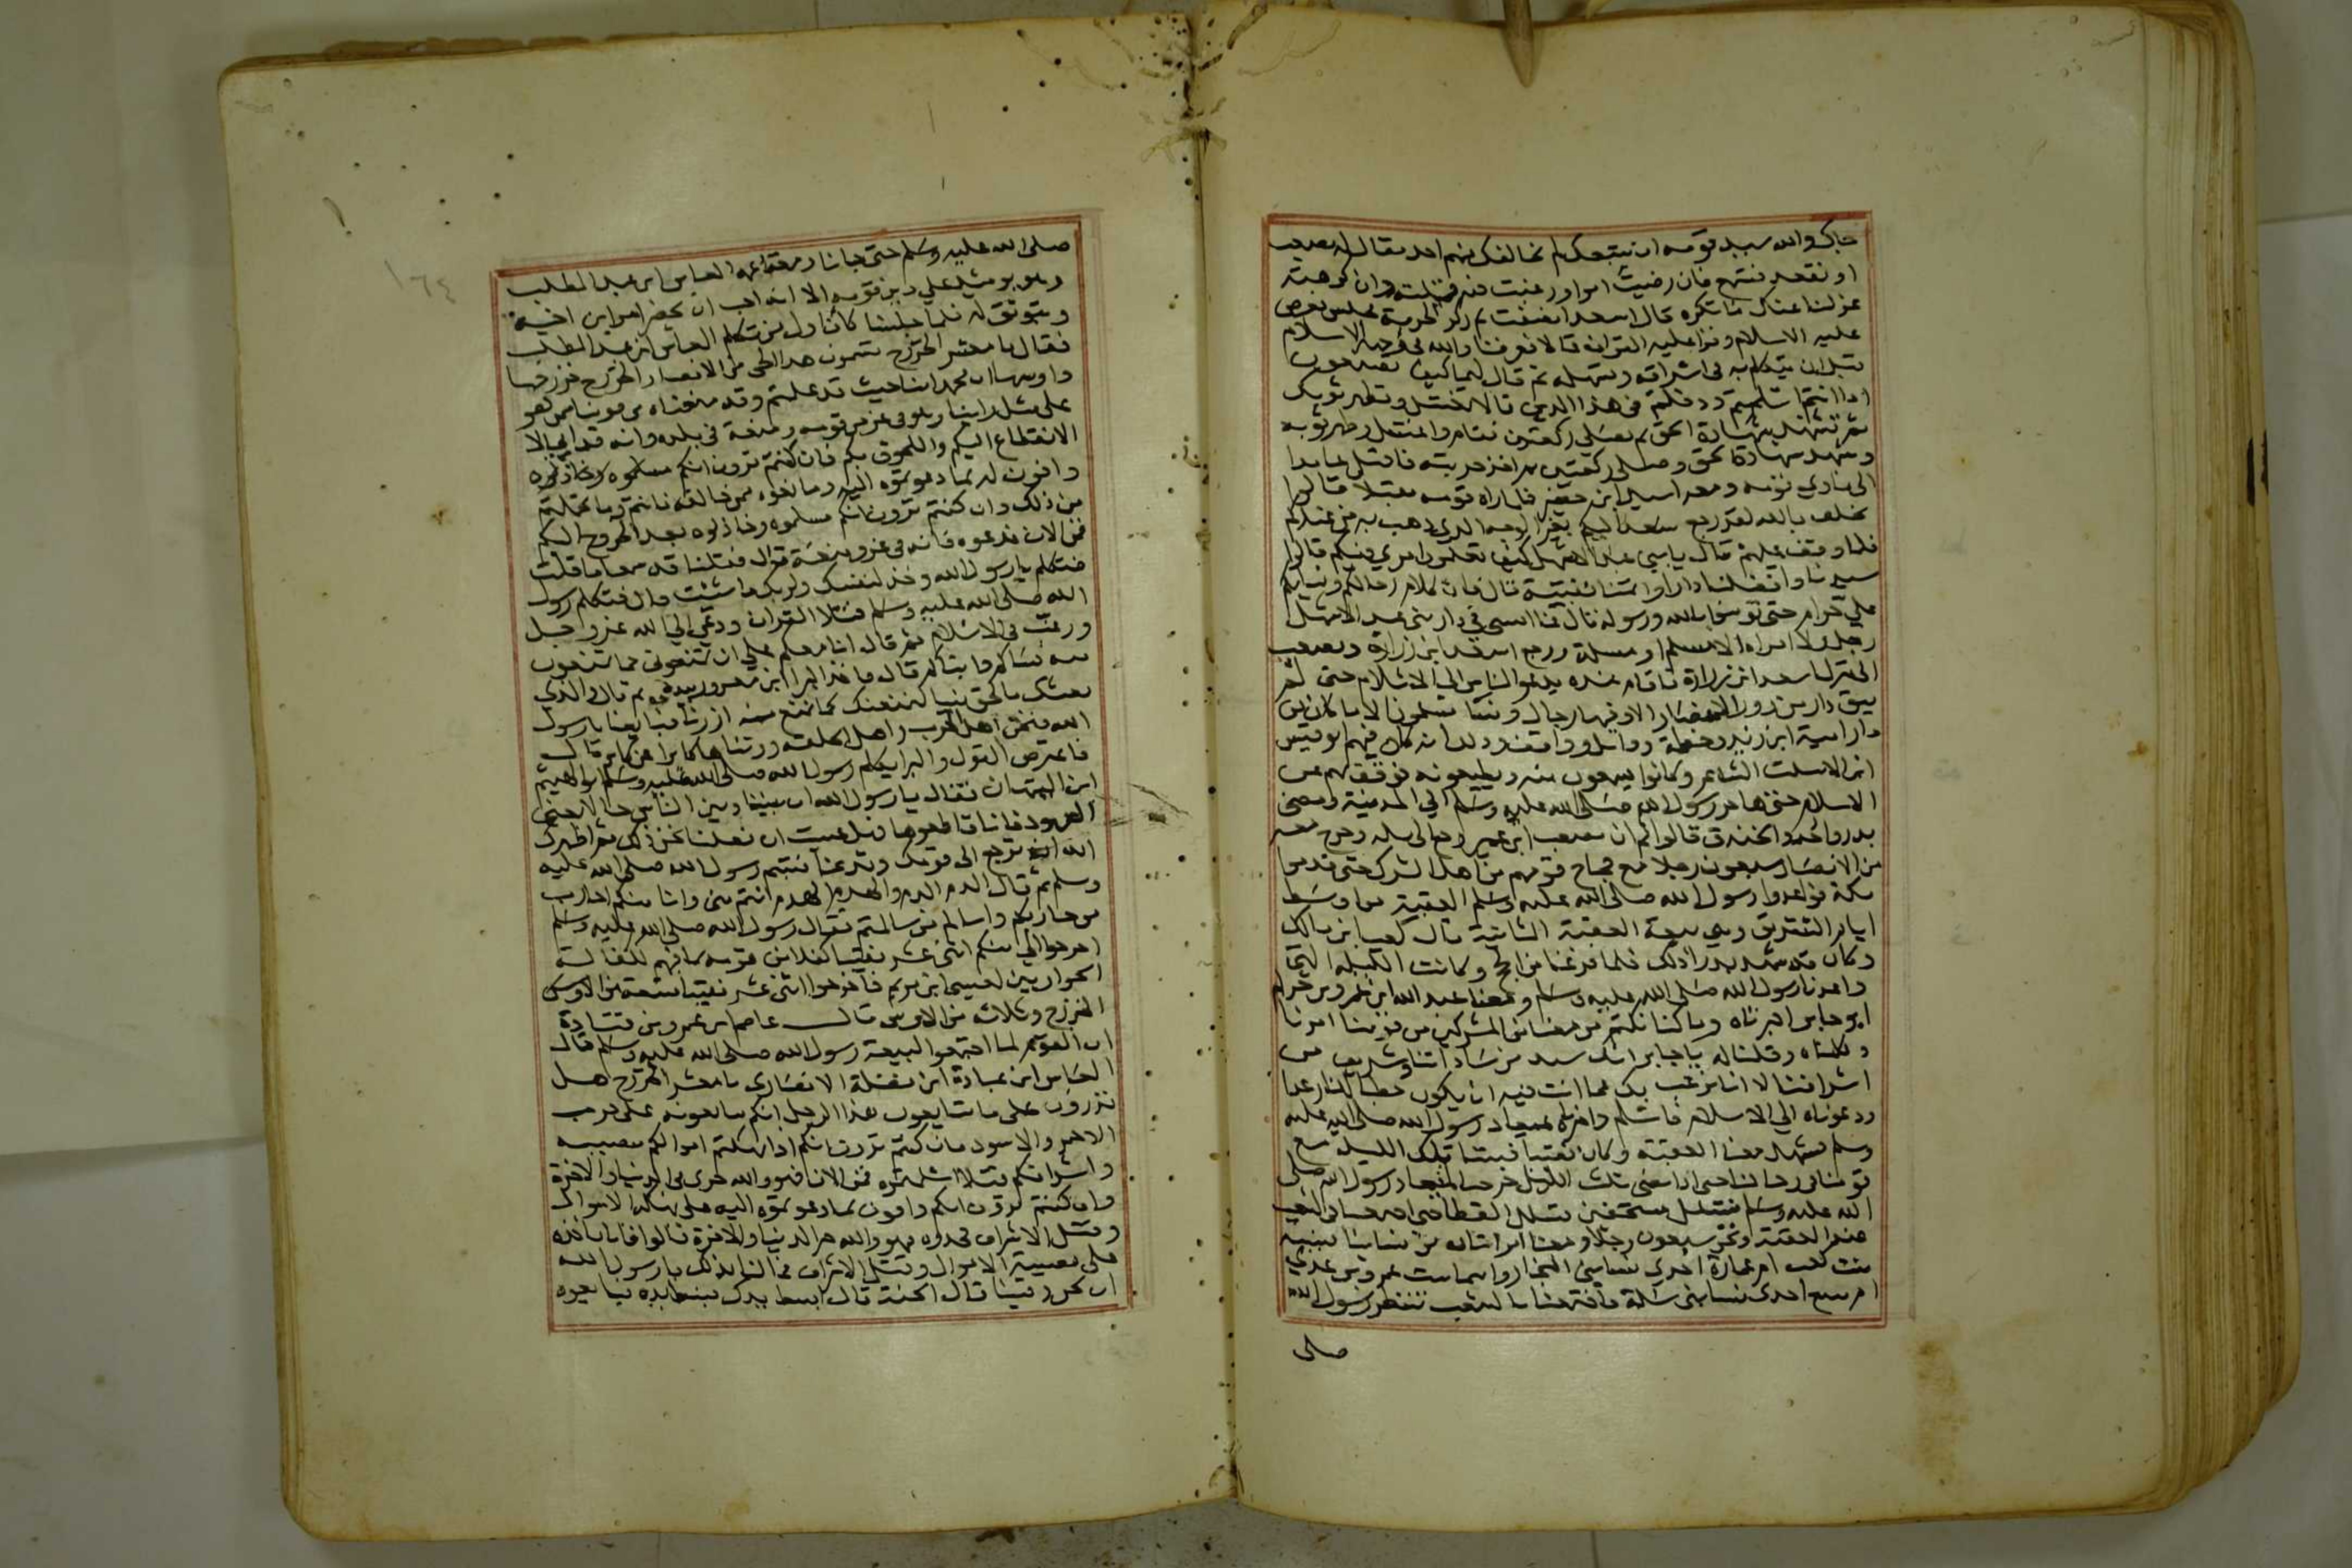 جاك والله سيد قومه ان يتبعك لم يخالفك منهم احد فقال له مصعب
او تقعد فتسمع فان رضيت امرا ورغبت فيه قبلته وان كرهته
عزلنا عنك ما تكره قال سعد انصفت ثم ركز الحربة فجلس فعرض
عليه الاسلام وقرا عليه القران قالا فعرفنا والله في وجهه الاسلام
قبل ان يتكلم به في اشراقه وتسهله ثم قال لهما كيف تصنعون
اذا انتم اسلمتم ودخلتم في هذا الدين قالا تغتسل وتطهر ثوبك
ثم تشهد شهادة الحق ثم تصلي ركعتين فقام واغتسل وطهر ثوبه
وشهد شهادة الحق وصلى ركعتين ثم اخذ حربته فاقبل عامدا
الى نادي قومه ومعه اسيد ابن حضير فلما راه قومه مقبلا قالوا
نحلف بالله لقد رجع سعد اليكم بغير الوجه الذي ذهب به من عندكم
فلما وقف عليهم قال يا بني عبد الاشهل كيف تعلمون امري فيكم قالوا
سيدنا وافضلنا رايا وايمننا نقيبة قال فان كلام رجالكم ونسايكم
علي حرام حتى تومنوا بالله ورسوله قال فما امسى في دار بني عبد الاشهل
رجل ولا امراة الا مسلم او مسلمة ورجع اسعد ابن زرارة ومصعب
الى منزل اسعد ابن زرارة فاقام عنده يدعو الناس الى الاسلام حتى لم
يبق دار من دور الانصار الا وفيها رجال ونسا مسلمون الا ما كان من
دار امية ابن زيد وخطمة ووايل وواقف وذلك انه كان فيهم ابو قيس
ابن الاسلت الشاعر وكانوا يسمعون منه ويطيعونه فوقف بهم عن
الاسلام حتى هاجر رسول الله صلى الله عليه وسلم الي المدينة ومضى
بدر واحد والخندق قالوا ثم ان مصعب ابن عمير رجع الى مكة وخرج معه
من الانصار سبعون رجلا مع حجاج قومهم من اهل الشرك حتى قدموا
مكة فواعدوا رسول الله صلى الله عليه وسلم العقبة من اوسط
ايام التشريق وهي بيعة العقبة الثانية قال كعب ابن مالك
وكان قد شهد بدرا ذلك فلما فرغنا من الحج وكانت الليلة التي
واعدنا رسول الله صلى الله عليه وسلم ومعنا عبد الله ابن عمرو بن حرام
ابو جابر اخبرناه وكنا نكتم من معنا من المشركين من قومنا امرنا
وكلمناه وقلنا له يا جابر انك سيد من ساداتنا وشريف من
اشرافنا وانا نرغب بك عما انت فيه ان يكون حطبا للنار غدا
ودعوناه الي الاسلام فاسلم واخبرناه بميعاد رسول الله صلى الله عليه
وسلم فشهد معنا العقبة وكان نقيبا فبتنا تلك الليلة مع
قومنا في رحالنا حتى اذا مضى ثلث الليل خرجنا لميعاد رسول الله صلى
الله عليه وسلم نتسلل مستخفين تسلل القطا حتى اجتمعنا في الشعب
عند العقبة ونحن سبعون رجلا ومعنا امراتان من نساينا نسيبة
بنت كعب ام عمارة احدى نسا بني النجار واسما بنت عمرو بن عدي
ام منيع احدى نسا بني سلمة فاجتمعنا بالشعب ننتظر رسول الله
صلى
١٦٤
صلى الله عليه وسلم حتى جانا ومعه عمه العباس ابن عبد المطلب
وهو يوميذ علي دين قومه الا انه احب ان يحضر امر ابن اخيه
ويتوثق له فلما جلسنا كان اول من تكلم العباس ابن عبد المطلب
فقال يا معشر الخزرج يسمون هذا الحي من الانصار الخزرج خزرجها
واوسها ان محمدا منا حيث قد علمتم وقد منعناه من قومنا ممن هو
على مثل راينا وهو في عز من قومه ومنعة في بلده وانه قد ابى الا
الانقطاع اليكم واللحوق بكم فان كنتم ترون انكم
وافون له بما دعوتموه اليه ومانعوه ممن خالفه فانتم وما تحملتم
من ذلك وان كنتم ترون انكم مسلموه وخاذلوه بعد الخروج اليكم
فمن الان فدعوه فانه في عز ومنعة قال فقلنا قد سمعنا ما قلت
فتكلم يا رسول الله وخذ لنفسك ولربك ما شئت قال فتكلم رسول
الله صلى الله عليه وسلم فتلا القران ودعى الي الله عز وجل
ورغب في الاسلام ثم قال ابايعكم على ان تمنعوني مما تمنعون
منه نساكم وابناكم قال فاخذ البرا ابن معرور بيده ثم قال والذي
بعثك بالحق نبيا لنمنعنك مما نمنع منه ازرنا فبايعنا يا رسول
الله فنحن اهل الحرب واهل الحلقة ورثناها كابرا عن كابر قال
فاعترض القول والبرا يكلم رسول الله صلى الله عليه وسلم ابو الهيثم
ابن التيهان فقال يا رسول الله ان بيننا وبين الناس حبالا يعني
العهود فانا قاطعوها فهل عسيت ان فعلنا نحن ذلك ثم اظهرك
الله ان ترجع الى قومك وتدعنا فتبسم رسول الله صلى الله عليه
وسلم ثم قال الدم الدم والهدم الهدم انتم مني وانا منكم احارب
من حاربتم واسالم من سالمتم فقال رسول الله صلى الله عليه وسلم
اخرجوا الي منكم اثني عشر نقيبا كفلا من قومه كافيهم كفالة
الحواريين لعيسى ابن مريم فاخرجوا اثني عشر نقيبا تسعة من
الخزرج وثلاثة من الاوس قال عاصم ابن عمرو بن قتادة
ان القوم لما اجتمعوا لبيعة رسول الله صلى الله عليه وسلم قال
العباس ابن عبادة ابن نضلة الانصاري يا معشر الخزرج هل
تدرون على ما تبايعون هذا الرجل انكم تبايعونه على حرب
الاحمر والاسود فان كنتم ترون انكم اذا انهكتم اموالكم مصيبة
واشرافكم قتلا اسلمتموه فمن الان فهو والله خزي في الدنيا والاخرة
وان كنتم ترون انكم وافون بما دعوتموه اليه على نهكة الاموال
وقتل الاشراف فخذوه فهو والله خير الدنيا والاخرة قالوا فانا ناخذه
على مصيبة الاموال وقتل الاشراف فما لنا بذلك يا رسول الله
ان نحن وفينا قال الجنة قال ابسط يدك فبسط يده فبايعوه